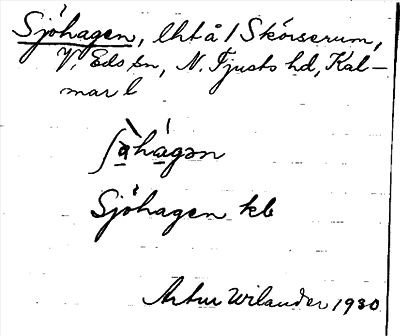 Sjöhagen, lht å 1 Skörserum,
V. Eds sn, N. Tjusts hd, Kal-
mar l
ʃàhágən
Sjöhagen kb
Artur Wilander 1930